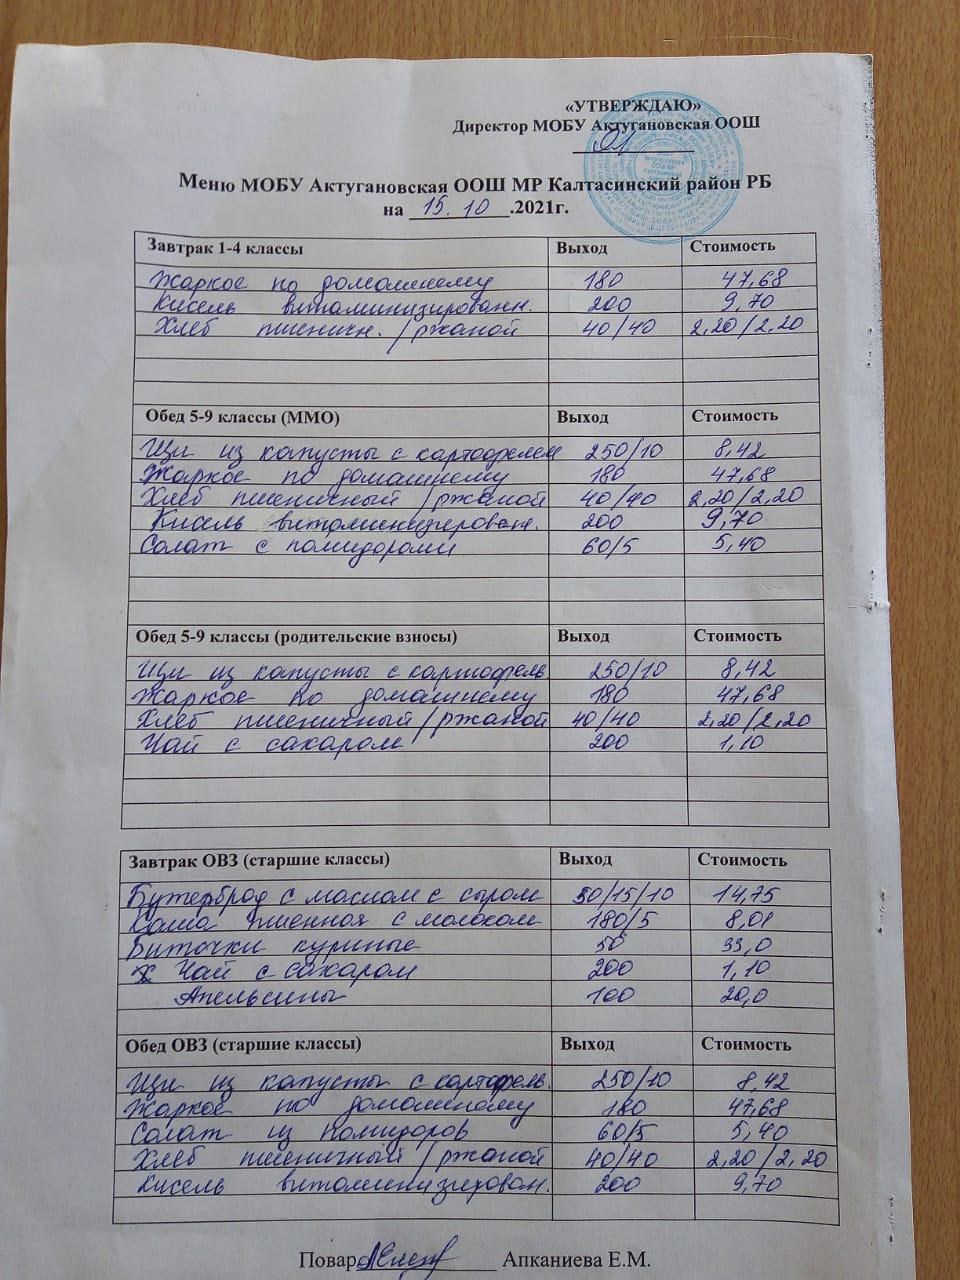 «УТВЕРЖДАЮ»
Директор МОБУ Актугановская ООШ
Меню МОБУ Актугановская ООШ МР Калтасинский район РБ
на 15.10.2021г.
Завтрак 1-4 классы Выход Стоимость
Жаркое по домашнему 180 47,68
Кисель витаминизированн. 200 9,70
Хлеб пшеничн. /ржаной 40/40 2,20/2,20
Обед 5-9 классы (ММО) Выход Стоимость
Щи из капусты с картофелем 250/10 8,42
Жаркое по домашнему 180 47,68
Хлеб пшеничный /ржаной 40/40 2,20/2,20
Кисель витаминизирован. 200 9,70
Салат с помидорами 60/5 5,40
Обед 5-9 классы (родительские взносы) Выход Стоимость
Щи из капусты с картофель. 250/10 8,42
Жаркое по домашнему 180 47,68
Хлеб пшеничный/ржаной 40/40 2,20/2,20
Чай с сахаром 200 1,10
Завтрак ОВЗ (старшие классы) Выход Стоимость
Бутерброд с маслом с сыром 50/15/10 14,75
Каша пшенная с молоком 180/5 8,01
Биточки куриные 50 33,0
Чай с сахаром 200 1,10
Апельсины 100 20,0
Обед ОВЗ (старшие классы) Выход Стоимость
Щи из капусты с картофель. 250/10 8,42
Жаркое по домашнему 180 47,68
Салат из помидоров 60/5 5,40
Хлеб пшеничный /ржаной 40/40 2,20/2,20
Кисель витаминизирован. 200 9,70
Повар Апканиева Е.М.